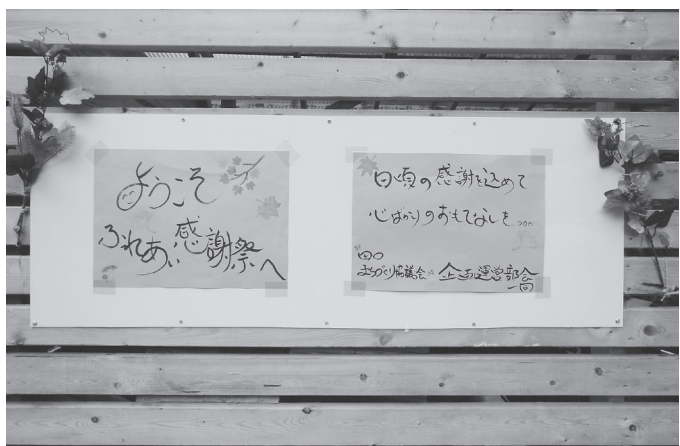 ようこそ
ふれあい感謝祭へ
日頃の感謝を込めて
心ばかりのおもてなしを…
田口
まちづくり協議会 企画運営部会
一同